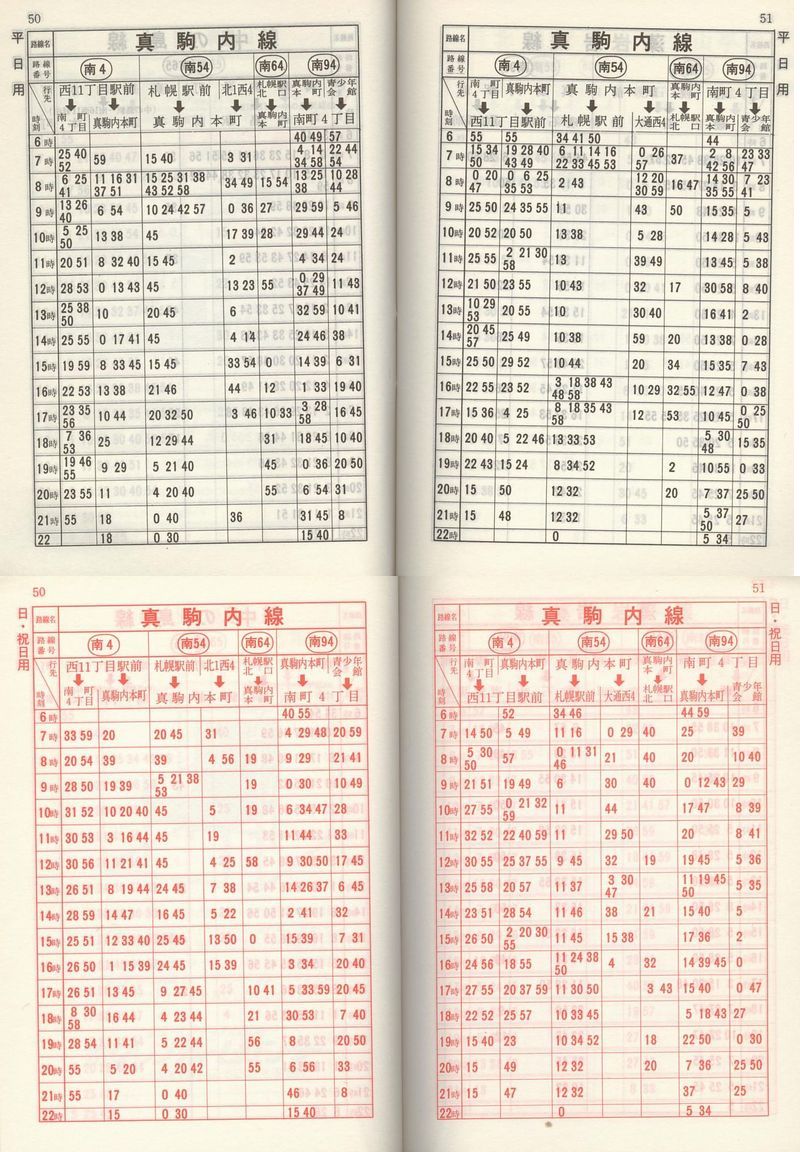 50
平日用
路線名 真駒内線
路線番号 南4 南54 南64 南94
行先 時刻 西11丁目駅前 札幌駅前 北1西4 札幌駅北口 真駒内本町 青少年会館
南町4丁目 真駒内本町 真駒内本町 真駒内本町 南町4丁目
6時 40 49 57
7時 25 40 52 59 15 40 3 31 4 14 34 58 22 44 54
8時 6 25 41 11 16 31 37 51 15 25 31 38 43 52 58 34 49 15 54 13 25 38 10 28 44
9時 13 26 40 6 54 10 24 42 57 0 36 27 29 59 5 46
10時 5 25 50 13 38 45 17 39 28 29 44 24
11時 20 51 8 32 40 15 45 2 4 34 24
12時 28 53 0 13 43 45 13 23 55 0 29 37 49 11 43
13時 25 38 50 10 20 45 6 32 59 10 41
14時 25 55 0 17 41 45 4 14 24 46 38
15時 19 59 8 33 45 15 45 33 54 0 14 39 6 31
16時 22 53 13 38 21 46 44 12 1 33 19 40
17時 23 35 56 10 44 20 32 50 3 46 10 33 3 28 58 16 45
18時 7 36 53 25 12 29 44 31 18 45 10 40
19時 19 46 55 9 29 5 21 40 45 0 36 20 50
20時 23 55 11 4 20 40 55 6 54 31
21時 55 18 0 40 36 31 45 8
22 18 0 30 15 40
51
平日用
路線名 真駒内線
路線番号 南4 南54 南64 南94
行先 時刻 南町4丁目 真駒内本町 真駒内本町 真駒内本町 南町4丁目
西11丁目駅前 札幌駅前 大通西4 札幌駅北口 真駒内本町 青少年会館
6 55 55 34 41 50 44
7時 15 34 50 19 28 40 43 49 6 11 14 16 22 33 45 53 0 26 57 37 2 8 42 56 23 33 47
8時 0 20 47 0 6 25 35 53 2 43 12 20 30 59 16 47 14 30 35 55 7 23 41
9時 25 50 24 35 55 11 43 50 15 35 5
10時 20 52 20 50 13 38 5 28 14 28 5 43
11時 25 55 2 21 30 58 13 39 49 13 45 5 38
12時 21 50 23 55 10 43 32 17 30 58 8 40
13時 10 29 53 20 55 10 30 40 16 41 2
14時 20 45 57 25 49 10 38 59 20 13 38 0 28
15時 25 50 29 52 10 44 20 34 15 35 7 43
16時 22 55 23 52 3 18 38 43 48 58 10 29 32 55 12 47 0 38
17時 15 36 4 25 8 18 35 43 58 12 53 10 45 0 25 50
18時 20 40 5 22 46 13 33 53 5 30 48 15 35
19時 22 43 15 24 8 34 52 2 10 55 0 33
20時 15 50 12 32 20 7 37 25 50
21時 15 48 12 32 5 37 50 27
22時 0 5 34
50
日・祝日用
路線名 真駒内線
路線番号 南4 南54 南64 南94
行先 時刻 西11丁目駅前 札幌駅前 北1西4 札幌駅北口 真駒内本町 青少年会館
南町4丁目 真駒内本町 真駒内本町 真駒内本町 南町4丁目
6時 40 55
7時 33 59 20 20 45 31 4 29 48 20 59
8時 20 54 39 39 4 56 19 9 29 21 41
9時 28 50 19 39 5 21 38 53 19 0 30 10 49
10時 31 52 10 20 40 45 5 19 6 34 47 28
11時 30 53 3 16 44 45 19 11 44 33
12時 30 56 11 21 41 45 4 25 58 9 30 50 17 45
13時 26 51 8 19 44 24 45 7 38 14 26 37 6 45
14時 28 59 14 47 16 45 5 22 2 41 32
15時 25 51 12 33 40 25 45 13 50 0 15 39 7 31
16時 26 50 1 15 39 24 45 15 39 3 34 20 40
17時 26 51 13 45 9 27 45 10 41 5 33 59 20 45
18時 8 30 58 16 44 4 23 44 21 30 53 7 40
19時 28 54 11 41 5 22 44 56 8 20 50
20時 55 5 20 4 20 42 55 6 56 33
21時 55 17 0 40 46 8
22時 15 0 30 15 40
51
日・祝日用
路線名 真駒内線
路線番号 南4 南54 南64 南94
行先 時刻 南町4丁目 真駒内本町 真駒内本町 真駒内本町 南町4丁目
西11丁目駅前 札幌駅前 大通西4 札幌駅北口 真駒内本町 青少年会館
6時 52 34 46 44 59
7時 14 50 5 49 11 16 0 29 40 25 39
8時 5 30 50 57 0 11 31 46 21 40 20 10 40
9時 21 51 19 49 6 30 40 0 12 43 29
10時 27 55 0 21 32 59 11 44 17 47 8 39
11時 32 52 22 40 59 11 29 50 20 8 41
12時 30 55 25 37 55 9 45 32 19 19 45 5 36
13時 25 58 20 57 11 37 3 30 47 11 19 45 50 5 35
14時 23 51 28 54 11 46 38 21 15 40 5
15時 26 50 2 20 30 55 11 45 15 38 17 36 2
16時 24 56 18 55 11 24 38 50 4 32 14 39 45 0
17時 27 55 20 37 59 11 30 50 3 43 15 40 0 47
18時 22 52 25 57 10 33 45 5 18 43 27
19時 15 40 23 10 34 52 18 22 50 0 30
20時 15 49 12 32 20 7 36 25 50
21時 15 47 12 32 37 25
22時 0 5 34